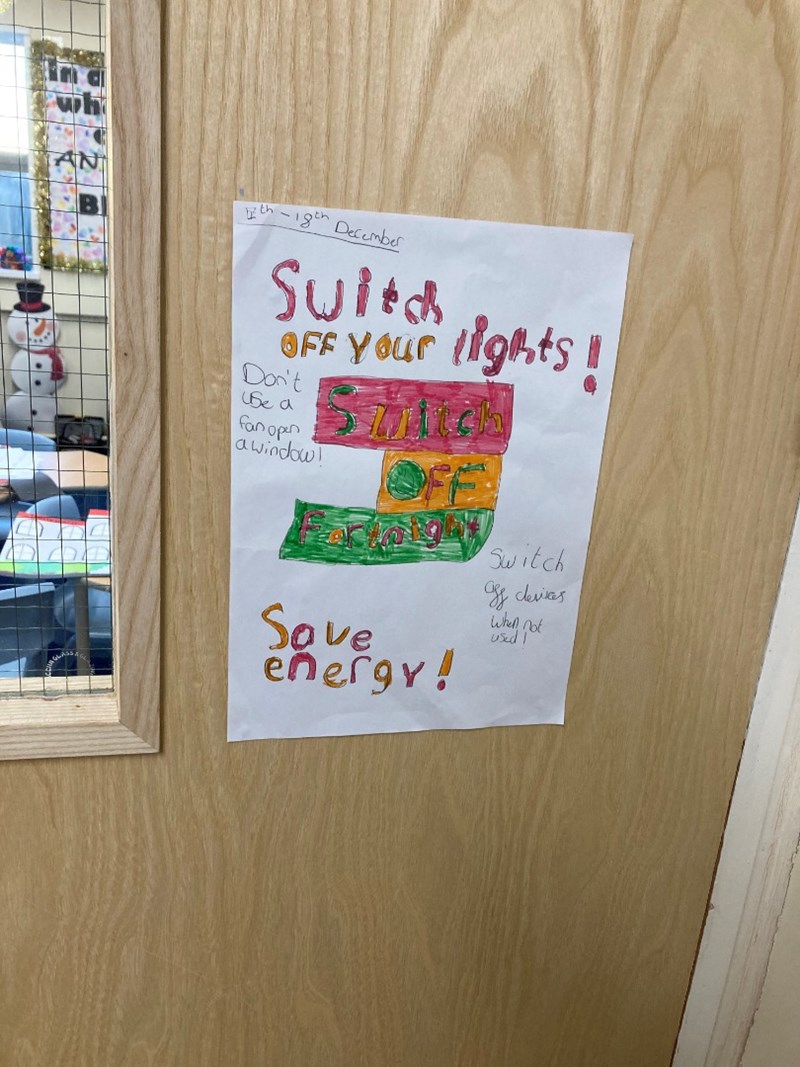 - 18th December
Switch
OFF your lights!
Don't
use a
fan open
a window!
Switch
OFF
Fortnight
Switch
off devices
when not
used!
Save
energy!
In a